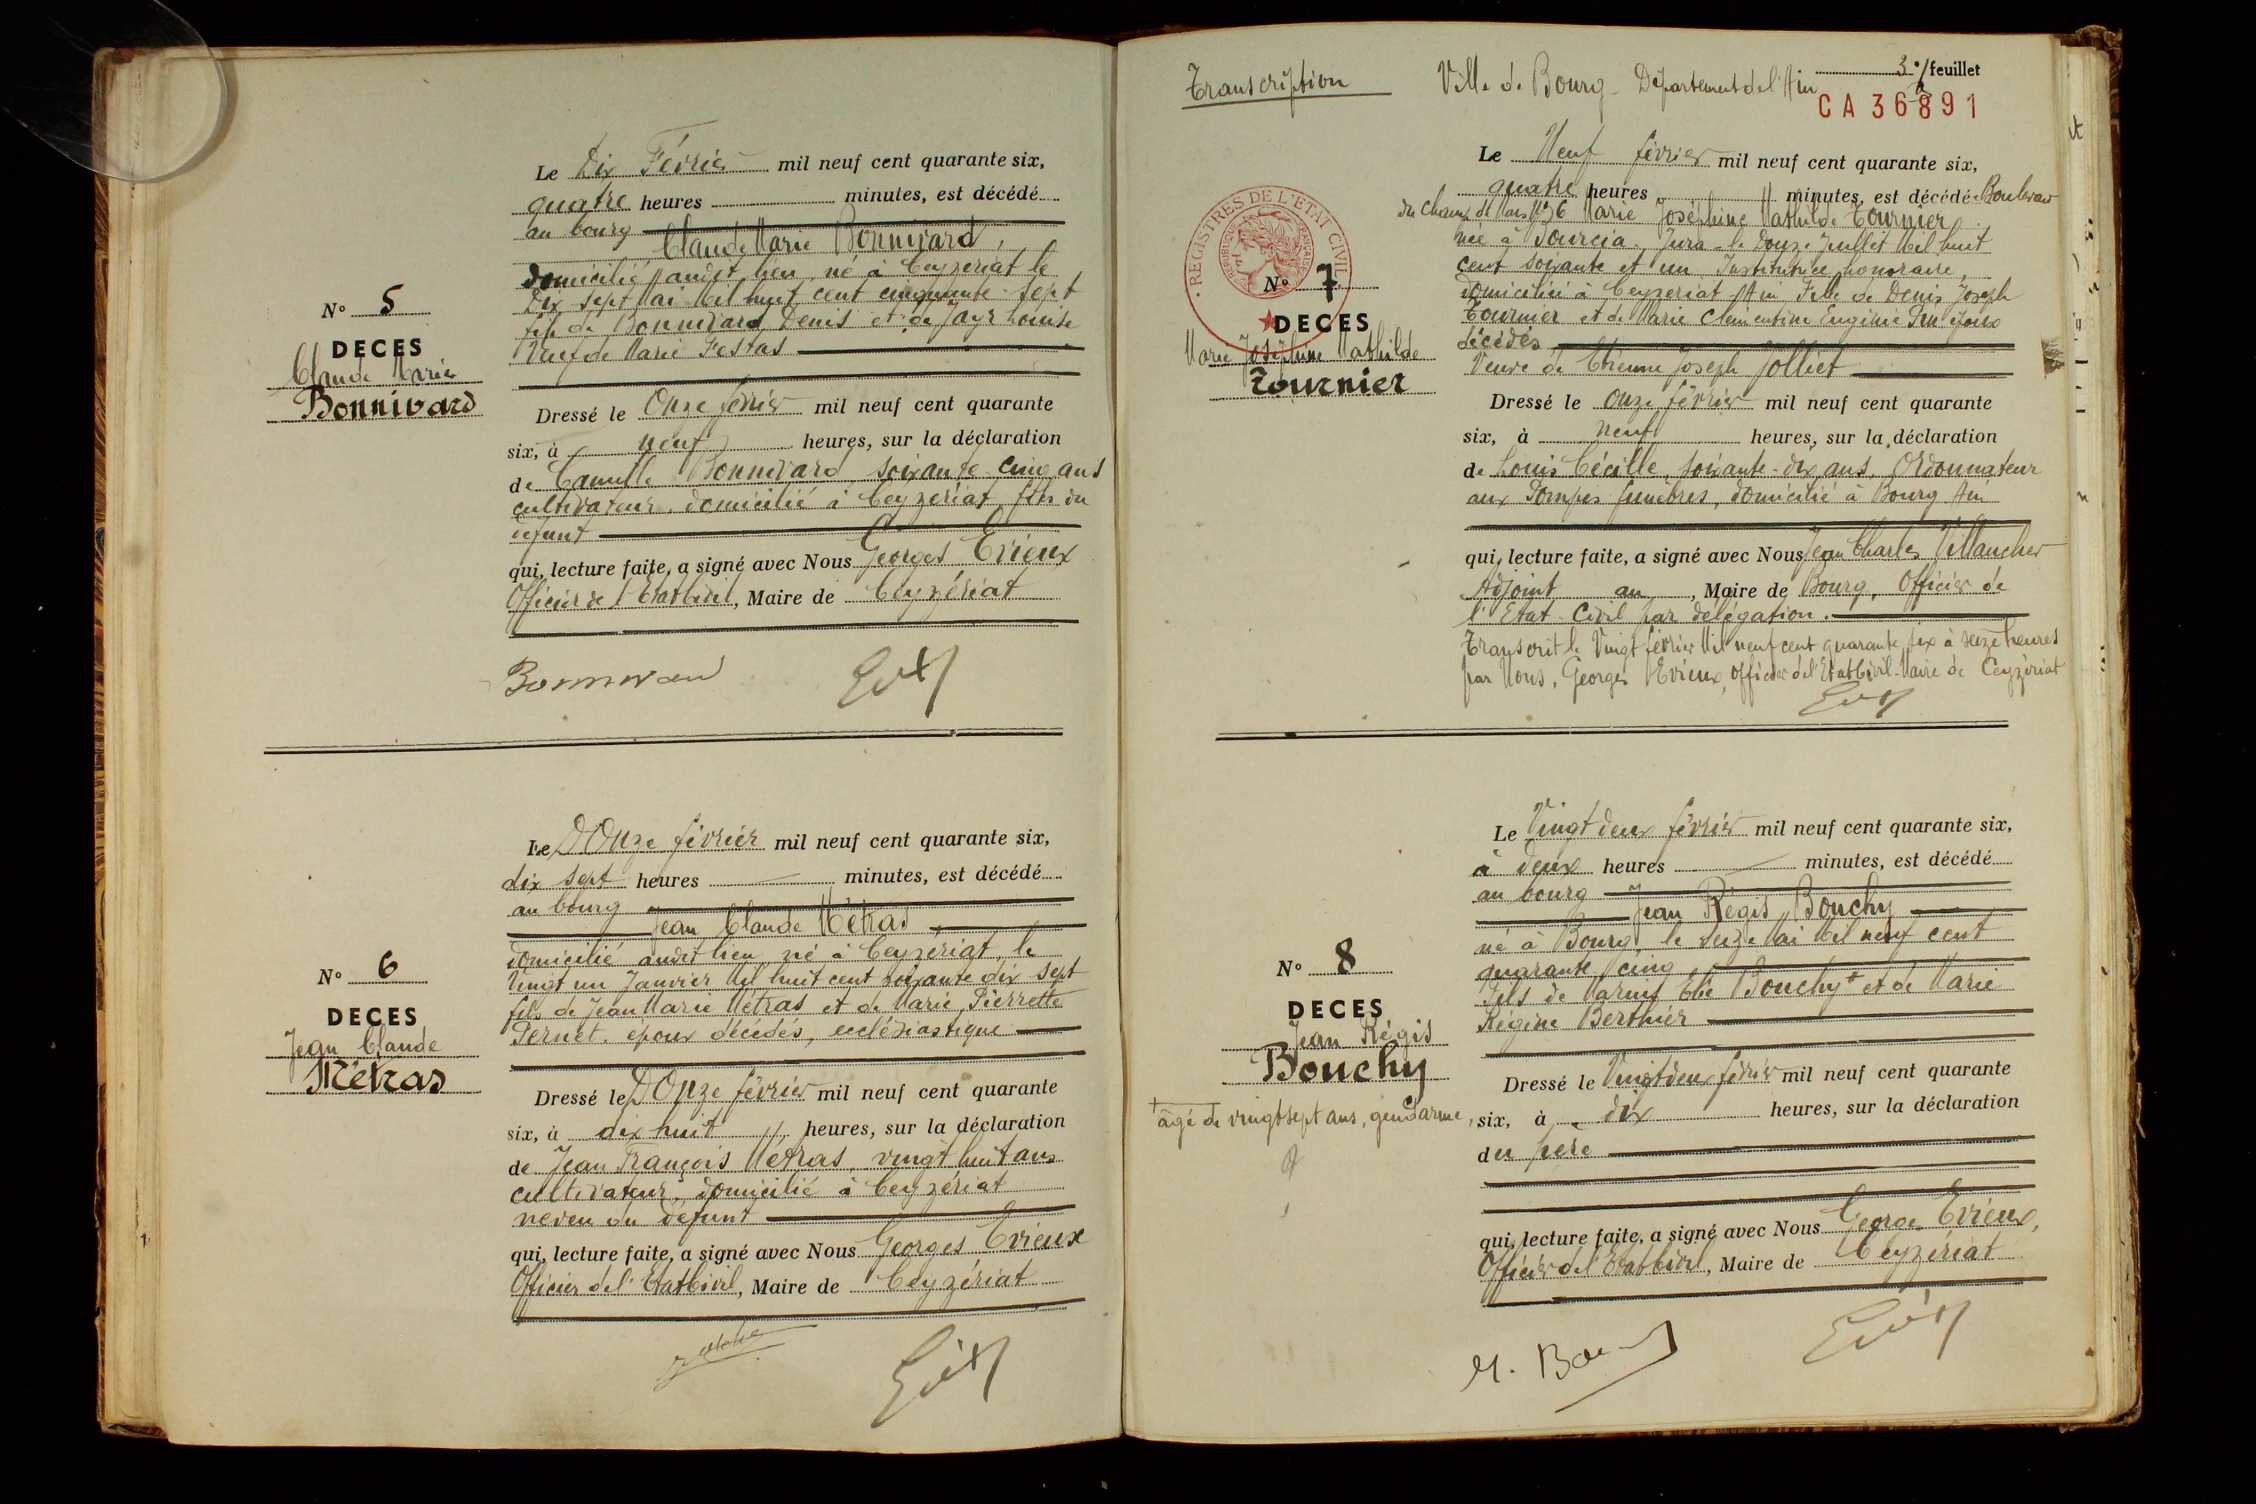 Le Dix Février mil neuf cent quarante six,
quatre heures minutes, est décédé
au bourg
Claude Marie Bonnivard,
domicilié audit lieu, né à Ceyzériat le
Dix sept Mai Mil huit cent cinquante-sept
fils de Bonnivard Denis et de Jayr Louise
Veuf de Marie Festas
N° 5
DECES
Claude Marie
Bonnivard
Dressé le Onze février mil neuf cent quarante
six, à neuf heures, sur la déclaration
de Camille Bonnivard soixante-cinq ans
cultivateur, domicilié à Ceyzériat, fils du
défunt
qui, lecture faite, a signé avec Nous Georges Evieux
Officier de l'Etat Civil, Maire de Ceyzériat
Le DOuze février mil neuf cent quarante six,
dix sept heures minutes, est décédé
au bourg
Jean Claude Métras,
domicilié audit lieu né à Ceyzériat le
Vingt un Janvier Mil huit cent soixante dix sept
fils de Jean Marie Métras et de Marie Pierrette
Pernet, époux décédés, ecclésiastique
N° 6
DECES
Jean Claude
Métras
Dressé le DOuze février mil neuf cent quarante
six, à dix huit heures, sur la déclaration
de Jean François Métras, vingt huit ans
cultivateur, domicilié à Ceyzériat
neveu du défunt
qui, lecture faite, a signé avec Nous Georges Evieux
Officier de l'Etat Civil, Maire de Ceyzériat
Transcription Ville de Bourg - Département de l'Ain 3e feuillet
CA 36891
Le Neuf février mil neuf cent quarante six,
quatre heures minutes, est décédé Boulevar
du Champ de Mars N° 36 Marie Joséphine Mathilde Tournier
née à Bourcia, Jura - le Douze Juillet Mil huit
cent soixante et un Institutrice honoraire,
domiciliée à Ceyzériat Ain Fille de Denis Joseph
Tournier et de Marie Clémentine Eugénie époux
décédés
Veuve de Etienne Joseph Jolliet
REGISTRES DE L'ETAT CIVIL
REPUBLIQUE FRANÇAISE
N° 7
DECES
Marie Joséphine Mathilde
Tournier
Dressé le Onze février mil neuf cent quarante
six, à neuf heures, sur la déclaration
de Louis Cécille, soixante-dix ans, Ordonnateur
aux Pompes funèbres, domicilié à Bourg Ain
qui, lecture faite, a signé avec Nous Jean Charles Villaucher
Adjoint au, Maire de Bourg, Officier de
l'Etat-Civil par délégation.
Transcrit le Vingt février Mil neuf cent quarante six à seize heures
par Nous, Georges Evieux, Officier de l'Etat Civil-Maire de Ceyzériat
Le Vingt deux février mil neuf cent quarante six,
à deux heures minutes, est décédé
au bourg
Jean Régis Bouchy
né à Bourg, le seize Mai Mil neuf cent
quarante cinq
Fils de Elie Bouchy + et de Marie
Régine Berthier
N° 8
DECES
Jean Régis
Bouchy
+ âgé de vingt-sept ans, gendarme,
Dressé le Vingt deux février mil neuf cent quarante
six, à dix heures, sur la déclaration
du père
qui, lecture faite, a signé avec Nous Georges Evieux,
Officier de l'Etat Civil, Maire de Ceyzériat